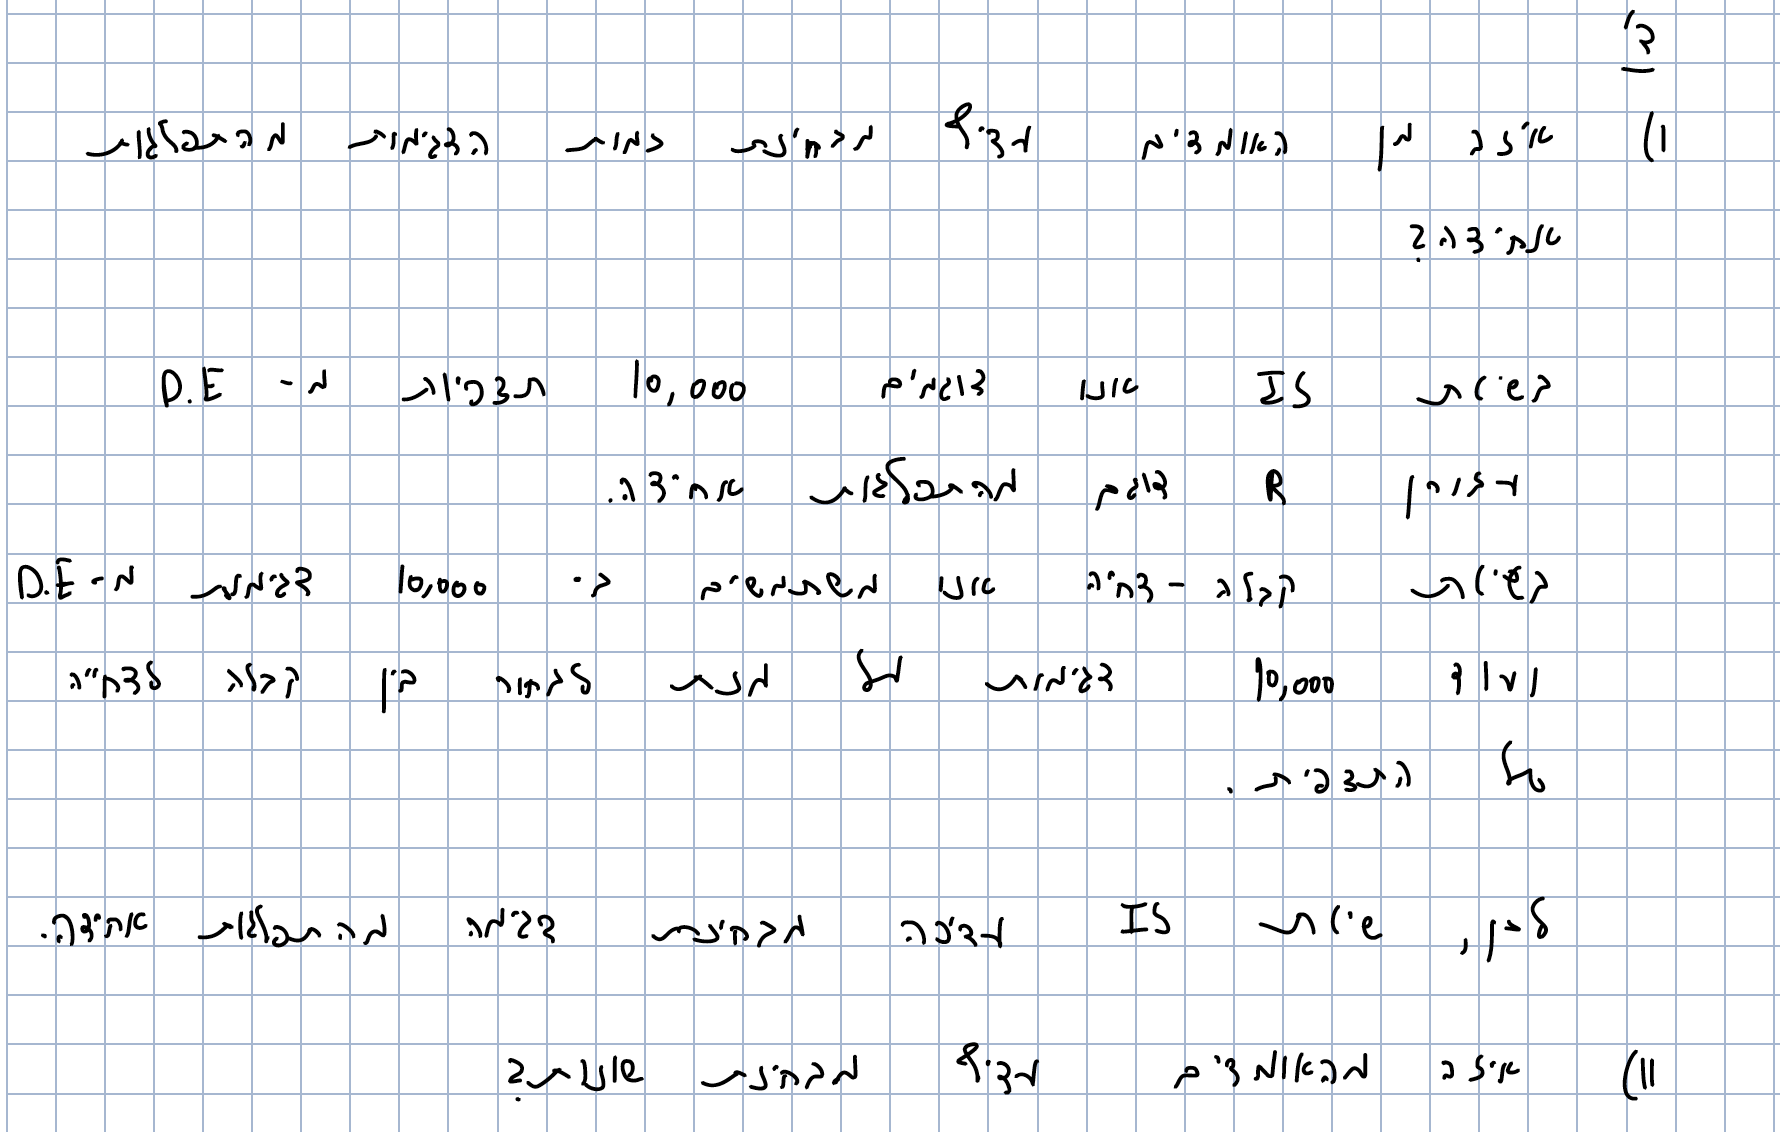 ד'
I) איזה מן האומדים עדיף מבחינת כמות הדגימות מהתפלגות
אחידה?
בשיטת IS אנו דוגמים 10,000 תצפיות מ- D.E
עליהן R דוגם מהתפלגות אחידה.
בשיטת קבלה - דחיה אנו משתמשים ב- 10,000 דגימות מ- D.E
ועוד 10,000 דגימות על מנת לבחור בין קבלה לדחייה
של התצפית.
לכן, שיטת IS עדיפה מבחינת דגימה מהתפלגות אחידה.
II) איזה מהאומדים עדיף מבחינת שונות?